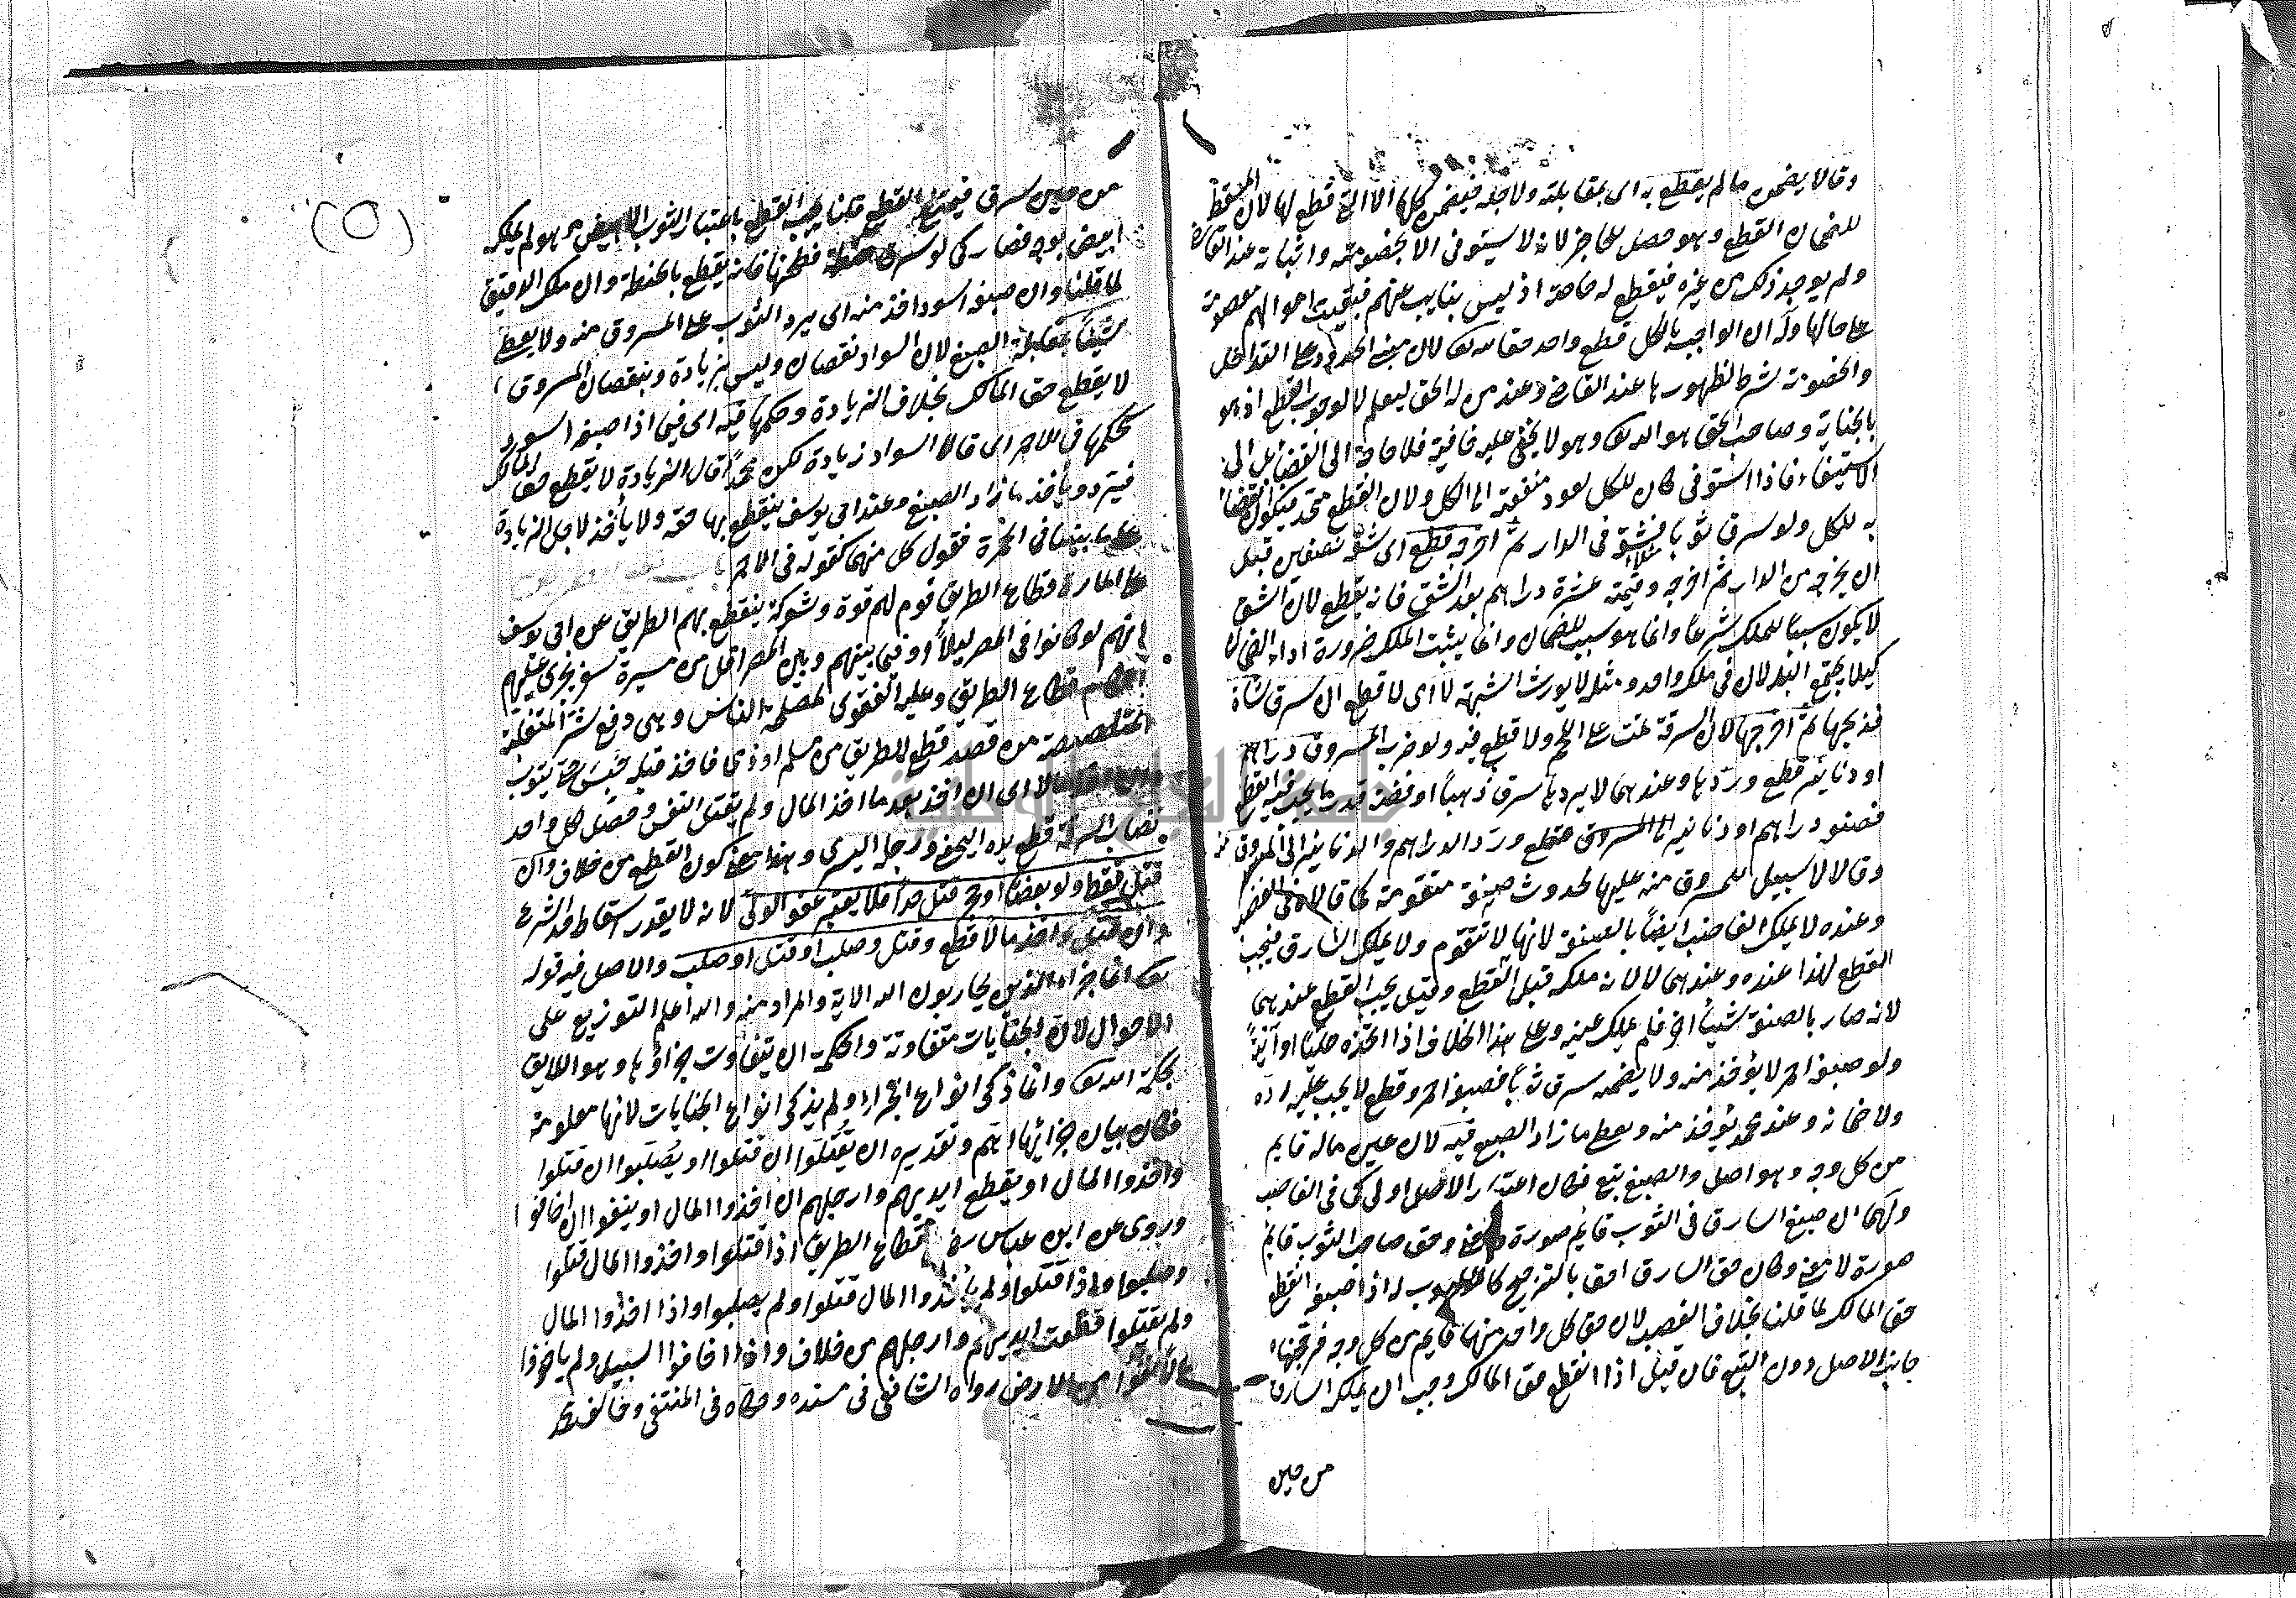 وقالا يضمن ما لم يقطع به اى بمقابلته ولاجله فيضمن كلها الا التى قطع لها لان المسقط
للضمان القطع وهو حصل للحاضر لانه لا يستوفى الا بخصومته واثباته عند القاضى
ولم يوجد ذلك من غيره فيقطع له خاصة اذ ليس بنايب عنهم فبقيت اموالهم معصومة
على حالها وله ان الواجب بالكل قطع واحد حقا لله تعالى لان مبنى الحدود على التداخل
والخصومة شرط لظهورها عند القاضى وعند من له الحق ليعلم لا لوجوب القطع اذ هو
بالجناية وصاحب الحق هو الله تعالى وهو لا يخفى عليه خافية فلا حاجة الى القضاء بل الى
الاستيفاء فاذا استوفى كان للكل لعود منفعته الى الكل ولان القطع متحد فيكون القضاء
به للكل ولو سرق ثوبا فشق فى الدار ثم اخرجه قطع اى شقه نصفين قبل
ان يخرجه من الدار ثم اخرجه وقيمته عشرة دراهم بعد الشق فانه يقطع لان الشق
لا يكون سببا للملك شرعا وانما هو سبب للضمان وانما يثبت الملك ضرورة اداء الضمان
كيلا يجتمع البدلان فى ملك واحد ومثله لا يورث الشبهة لا اى لا قطع ان سرق شاة
فذبحها ثم اخرجها لان السرقة تمت على اللحم ولا قطع فيه ولو ضرب المسروق دراهم
او دنانير قطع وردها وعندهما لا يردها سرق ذهبا او فضة قدر ما يجب فيه القطع
فصنعه دراهم او دنانير قطع ورد الدراهم والدنانير الى المسروق منه
وقالا لا سبيل للمسروق منه عليها لحدوث صنعة متقومة كما قالا فى الغصب
وعنده لا يملك الغاصب ايضا بالصنعة لانها لا تتقوم ولا يملك السارق فيجب
القطع لهذا عنده وعندهما لا لانه ملكه قبل القطع وقيل يجب القطع عندهما
لانه صار بالصنعة شيئا اخر فلم يملك عينه وعلى هذا الخلاف اذا اتخذه حليا او آنية
ولو صبغه احمر لا يؤخذ منه ولا يضمنه سرق ثوبا فصبغه احمر وقطع لا يجب عليه رده
ولا ضمانه وعند محمد يؤخذ منه ويعطى ما زاد الصبغ فيه لان عين ماله قايم
من كل وجه وهو اصل والصبغ تبع فكان اعتبار الاصل اولى كما فى الغاصب
ولهما ان صبغ السارق فى الثوب قايم صورة ومعنى وحق صاحب الثوب قايم
صورة لا معنى وكان حق السارق احق بالترجيح كالموهوب له اذا صبغه انقطع
حق المالك لما قلنا بخلاف الغصب لان حق كل واحد منهما قايم من كل وجه فرجحنا
جانب الاصل دون التبع فان قيل اذا انقطع حق المالك وجب ان يملكه السارق
من حين
من حين سرق فيمتنع القطع قلنا يجب القطع باعتبار الثوب الابيض وهو لم يملكه
ابيض بوجه فصار كما لو سرق حنطة فطحنها فانه يقطع بالحنطة وان ملك الدقيق
لما قلنا وان صبغه اسود اخذ منه اى يرد الثوب على المسروق منه ولا يعطى
شيئا بمقابلة الصبغ لان السواد نقصان وليس بزيادة وبنقصان المسروق
لا يقطع حق المالك بخلاف الزيادة وحكمها فيه اى فيما اذا صبغه اسود
كحكمها فى الاحمر اى قالا السواد زيادة لكن محمدا قال الزيادة لا تقطع حق المالك
فيسترده ويأخذ ما زاد الصبغ وعند ابى يوسف ينقطع بها حقه ولا يأخذ لاجل الزيادة
على ما بينا فى الحمرة فقول كل منهما كقوله فى الاحمر
على المارة قطاع الطريق قوم لهم قوة وشوكة ينقطع بهم الطريق عن ابى يوسف
انهم لو كانوا فى المصر ليلا او فيما بينهم وبين المصر اقل من مسيرة سفر يجرى عليهم
احكام قطاع الطريق وعليه الفتوى لمصلحة الناس وهى دفع شر المتغلبة
المتلصصة من قصد قطع الطريق من مسلم او ذمى فاخذ قبله حبس حتى يتوب
مالا اى ان اخذ بعد ما اخذ المال ولم يقتل النفس وحصل لكل واحد
نصاب السرقة قطع يده اليمنى ورجله اليسرى وهذا معنى كون القطع من خلاف وان
قتل فقط ولو بعصا او حجر قتل حدا فلا يعتبر عفو الولى لانه لا يقدر اسقاط حد الشرع
وان قتل واخذ مالا قطع وقتل وصلب او قتل او صلب والاصل فيه قوله
تعالى انما جزاء الذين يحاربون الله الاية والمراد منه والله اعلم التوزيع على
الاحوال لان الجنايات متفاوتة والحكمة ان يتفاوت جزاؤها وهو اللايق
بحكمة الله تعالى وانما ذكر انواع الجزاء ولم يذكر انواع الجنايات لانها معلومة
فكان بيان جزائها اهم وتقديره ان يقتلوا ان قتلوا او يصلبوا ان قتلوا
واخذوا المال او يقطع ايديهم وارجلهم ان اخذوا المال او ينفوا ان اخافوا
وروى عن ابن عباس رضى قطاع الطريق اذا قتلوا واخذوا المال قتلوا
وصلبوا واذا قتلوا ولم يأخذوا المال قتلوا ولم يصلبوا واذا اخذوا المال
ولم يقتلوا قطعت ايديهم وارجلهم من خلاف واذا اخافوا السبيل ولم ياخذوا
مالا نفوا من الارض رواه الشافعى فى مسنده وحكاه فى المنتقى وخالف